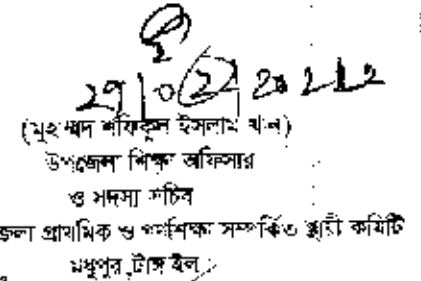 (মুহাম্মদ শফিকুল ইসলাম খান)
উপজেলা শিক্ষা অফিসার
ও সদস্য সচিব
জেলা প্রাথমিক ও গণশিক্ষা সম্পর্কিত স্থায়ী কমিটি
মধুপুর, টাঙ্গাইল